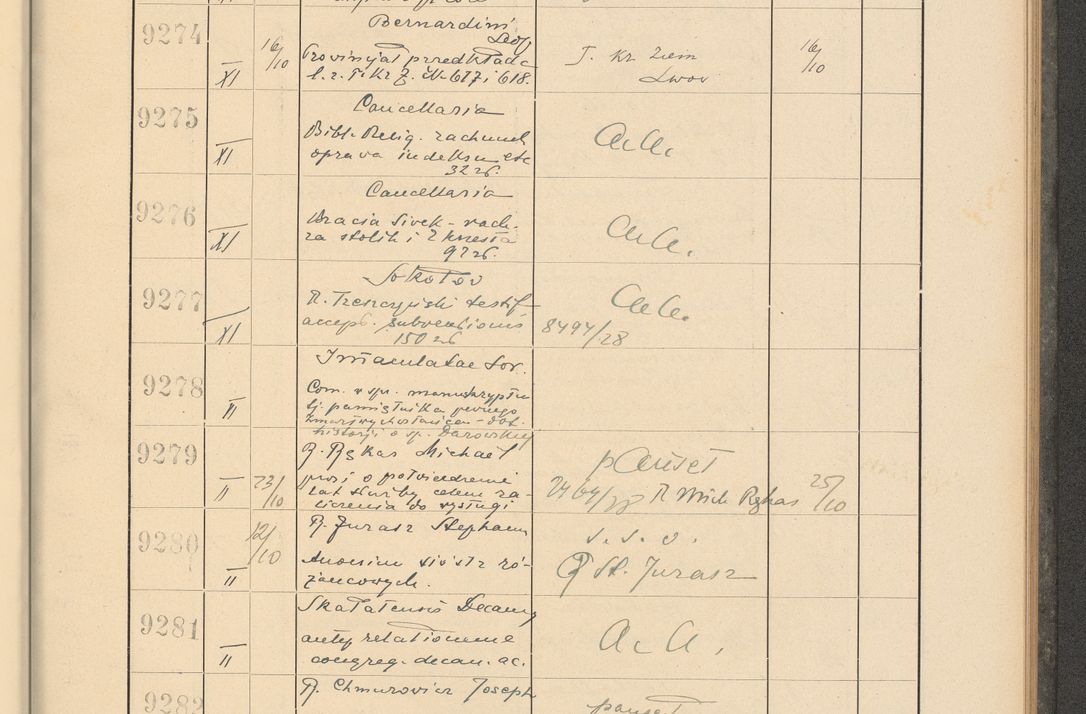 9274
XI
16/10
Bernardini
Leop.
Prowinciał przedkłada
l. r. T. Kr Z. № 617 i 618.
T. Kr Ziem
Lwow
16/10
9275
XI
Cancellaria
Bibl. Relig. rachunek
oprava indeksu etc
32 zł.
a.a.
9276
XI
Cancellaria
Bracia Sivek - rach.
za stolik i 2 krzesła
97 zł.
a.a.
9277
XI
Sokołov
R. Treszczyński testif.
accep. subventionis
150 zł
a.a.
8494/28
9278
II
Immaculatae Sor.
Com. v spr. manuskryptu
tj. pamiętnika pewnego
zmartwychwstańca - dot.
historji o sp. Darowskiej
9279
II
23/10
R. Rękas Michael
prosi o potwierdzenie
lat służby celem za-
liczenia do wysługi
pAuset
R Mich Rękas
25/10
9280
II
12/10
R. Jurasz Stephan
sióstr ró-
żańcowych.
s. s. o.
R St. Jurasz
9281
II
Skałatensis Decanus
relationem
congreg. decan. ac.
A. A.
9282
R. Chmurovicz Joseph